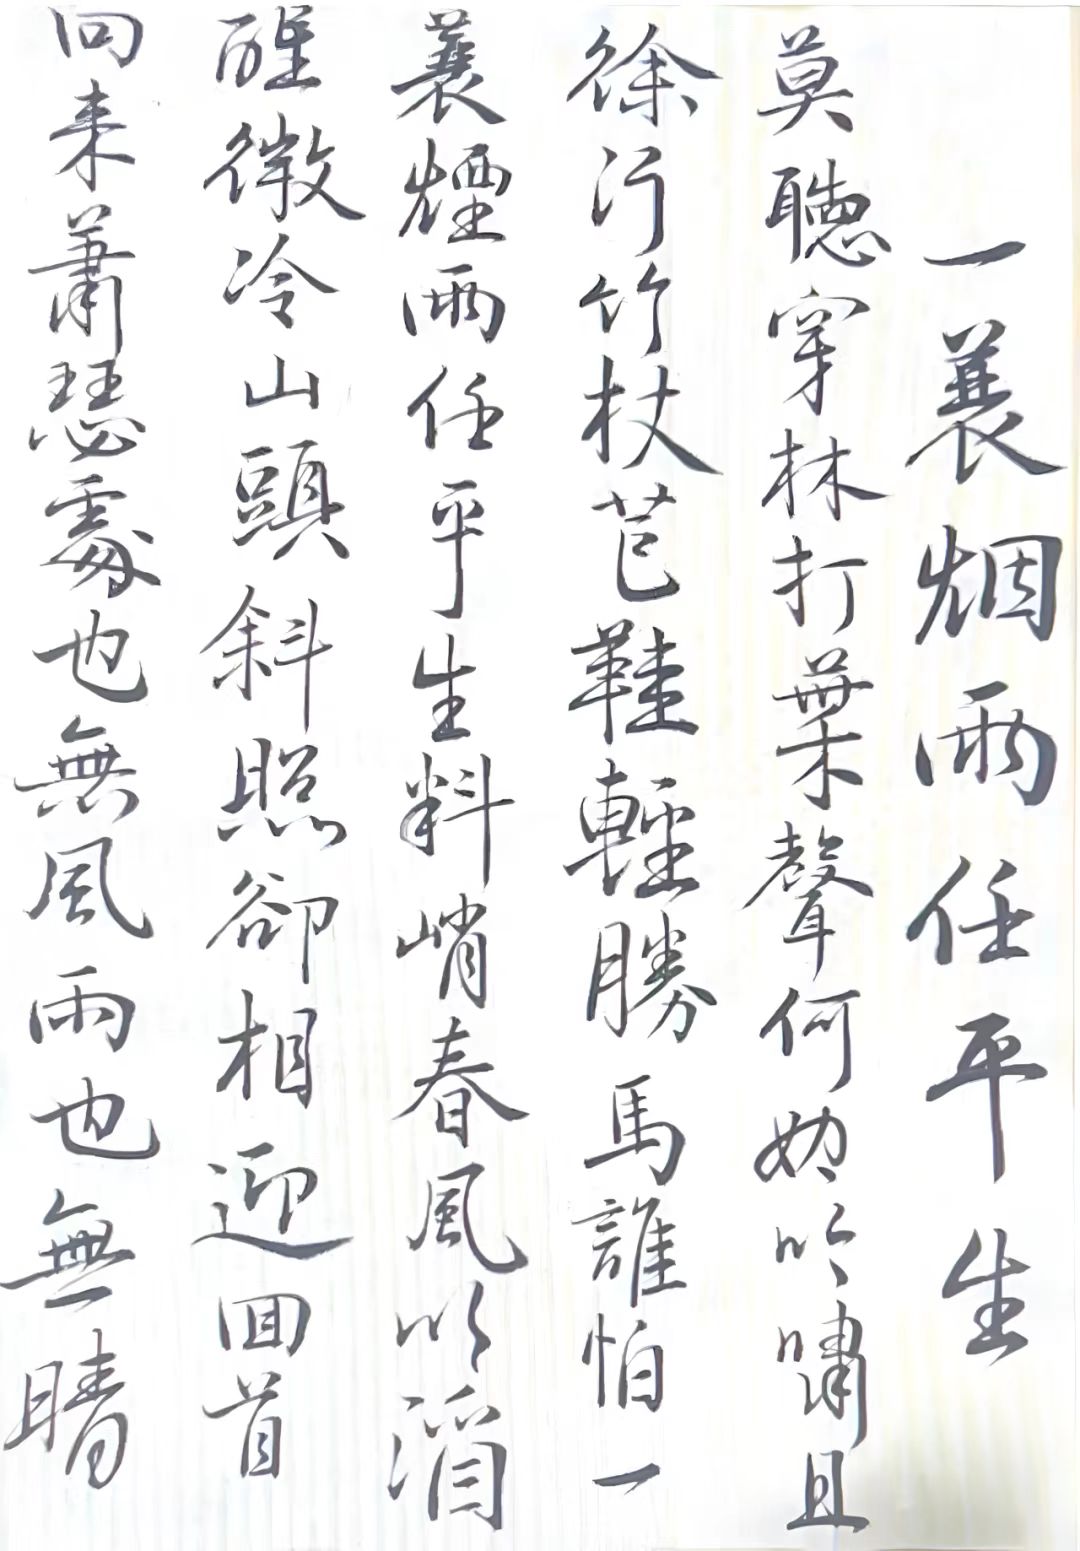 一蓑烟雨任平生
莫聽穿林打葉聲何妨吟嘯且
徐行竹杖芒鞋輕勝馬誰怕一
蓑煙雨任平生料峭春風吹酒
醒微冷山頭斜照卻相迎回首
向来蕭瑟處也無風雨也無晴